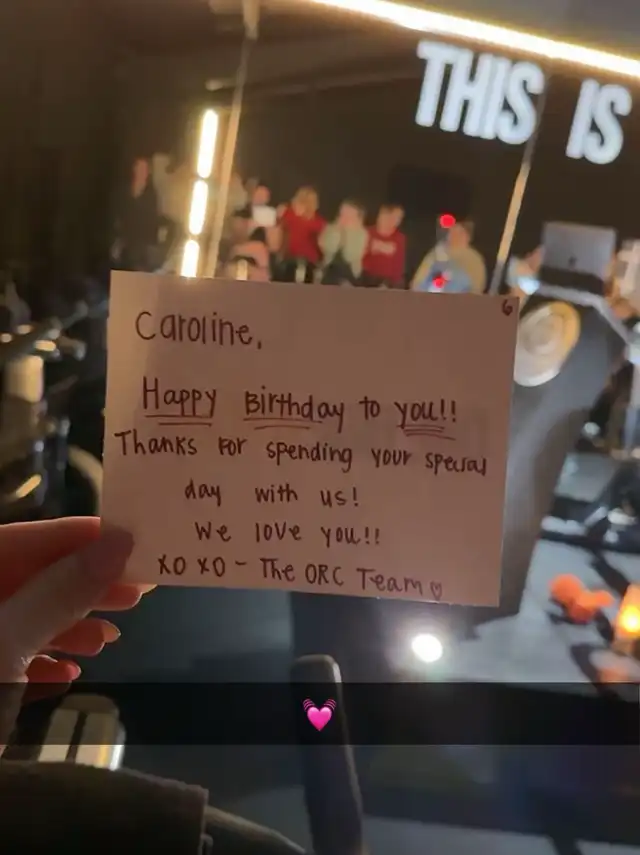 THIS IS
6
Caroline,
Happy Birthday to you!!
Thanks for spending your special
day with us!
We love you!!
XO XO - The ORC Team♡
💓